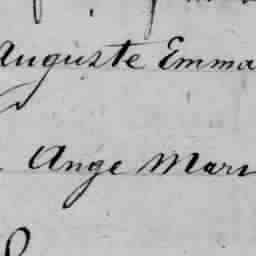 Auguste Emma
Ange Mari